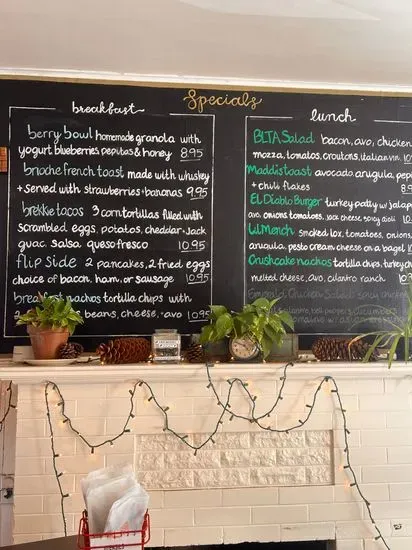 Specials
breakfast
berry bowl homemade granola with
yogurt blueberries pepitas & honey 8.95
brioche french toast made with whiskey
+ served with strawberries + bananas 9.95
brekkie tacos 3 corn tortillas filled with
scrambled eggs, potatoes, cheddar + Jack
guac salsa queso fresco 10.95
flip side 2 pancakes, 2 fried eggs
choice of bacon, ham, or sausage 10.95
nachos tortilla chips with
beans, cheese, avo 10.95
lunch
BLTA Salad bacon, avo, chicken
mozza, tomatos, croutons, italian vin. 10
Maddis toast avocado arugula, pepi
+ chili flakes 8.5
EL Diablo Burger turkey patty w/ jalap
avo onions tomatoes, jack cheese spicy aioli 10
Lil Mensch smoked lox, tomatoes, onions,
arugula, pesto cream cheese on a bagel 10
Crushcake nachos tortilla chips, turkey ch
melted cheese, avo, cilantro ranch 10
Chicken Salad spicy chicken